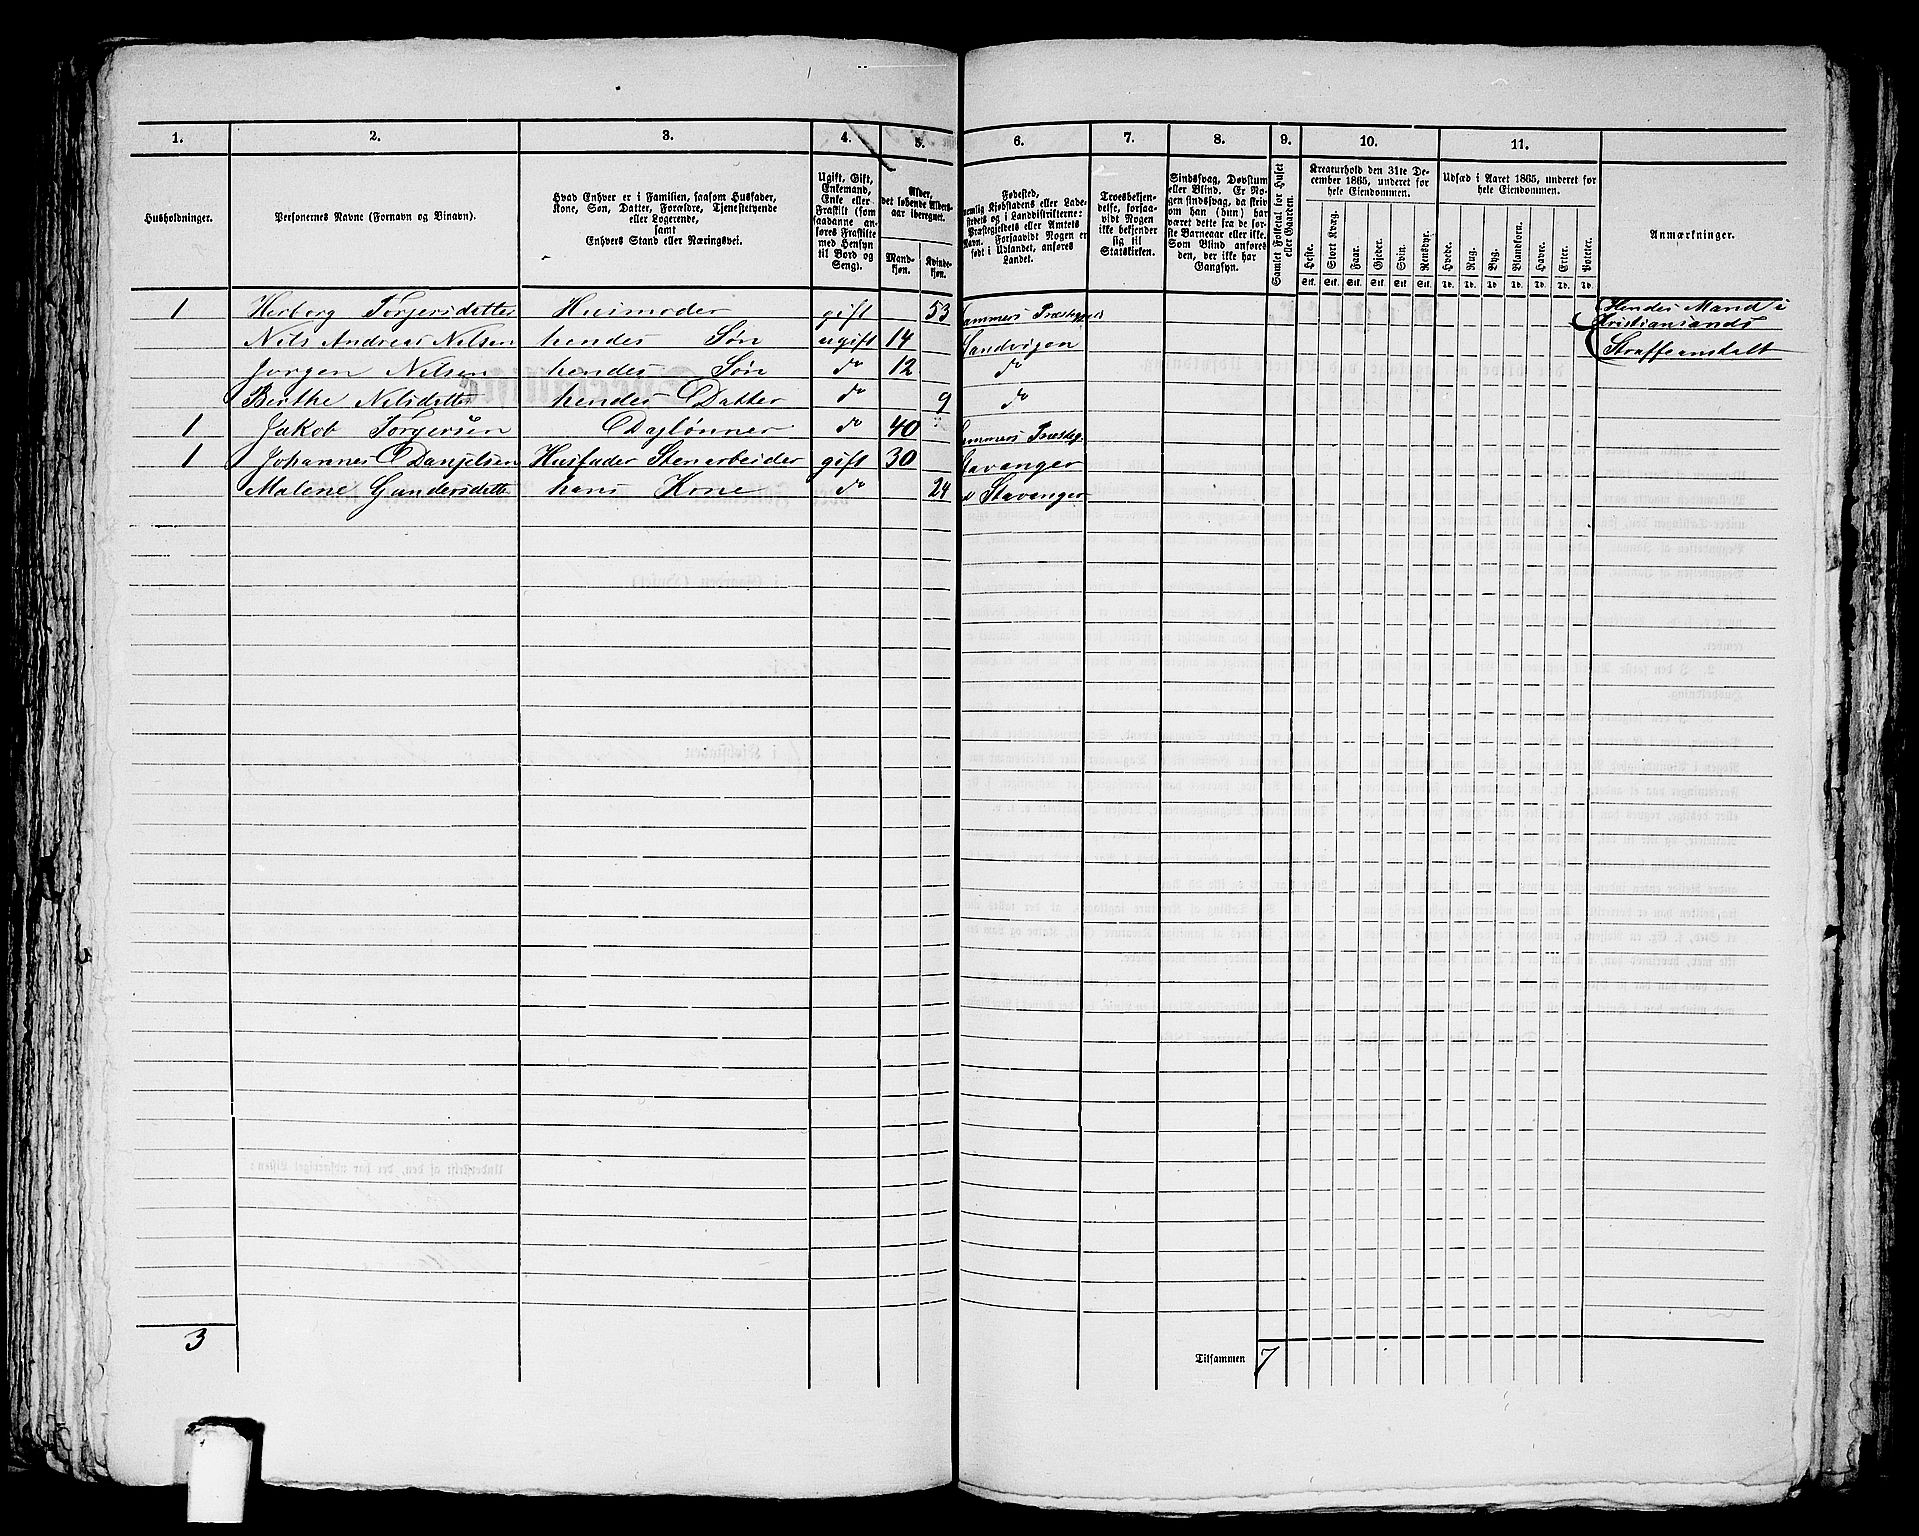 1. 2. 3. 4. 5. 6. 7. 8. 9. 10. 11.
Husholdninger.
Personernes Navne (Fornavn og Tilnavn).
Hvad Enhver er i Familien, saasom Husfader,
Kone, Søn, Datter, Forældre, Tjenestetyende
eller Logerende,
samt
Enhvers Stand eller Næringsvei.
Ugift, Gift,
Enkemand,
Enke eller
Fraskilt (som
saadanne an-
føres Fraskilte
med Hensyn
til Bord og
Seng).
Alder,
det løbende Alders-
aar iberegnet.
Mand-
kjøn.
Kvinde-
kjøn.
Fødested,
nemlig Kjøbstadens eller Lade-
stedets og i Landdistrikterne:
Præstegjeldets eller Amtets
Navn. Forsaavidt Nogen er
født i Udlandet, anføres
Landet.
Troesbekjen-
delse, forsaa-
vidt Nogen
ikke bekjender
sig til
Statskirken.
Sindssvag, Døvstum
eller Blind. Er No-
gen sindssvag, da skriv
om han (hun) har
været dette fra de før-
ste Barneaar eller ikke.
Som Blind anføres
den, der ikke har
Gangsyn.
Samlet Folketal for Huset
eller Gaarden.
Kreaturhold den 31te De-
cember 1865, underet for
hele Eiendommen.
Heste. Stort Kvæg. Faar. Gjeder. Svin. Rensdyr.
Stk. Stk. Stk. Stk. Stk. Stk.
Udsæd i Aaret 1865, underet for
hele Eiendommen.
Hvede. Rug. Byg. Blandkorn. Havre. Erter. Poteter.
Td. Td. Td. Td. Td. Td. Td.
Anmærkninger.
1 Herborg Torgersdatter Huusmoder gift 53 Hammers Præstegj. Hendes Mand i
Kristiansands
Nils Andreas Nilsen hendes Søn ugift 14 Sandvigen Straffeanstalt
Jørgen Nilsen hendes Søn do 12 do
Berthe Nilsdatter hendes Datter do 9 do
1 Jakob Torgersen Daglønner do 40 Hammers Præsteg.
1 Johannes Danjelsen Husfader Stenarbeider gift 30 Stavanger
Malene Gundersdatt hans Kone do 24 Stavanger
3
Tilsammen 7